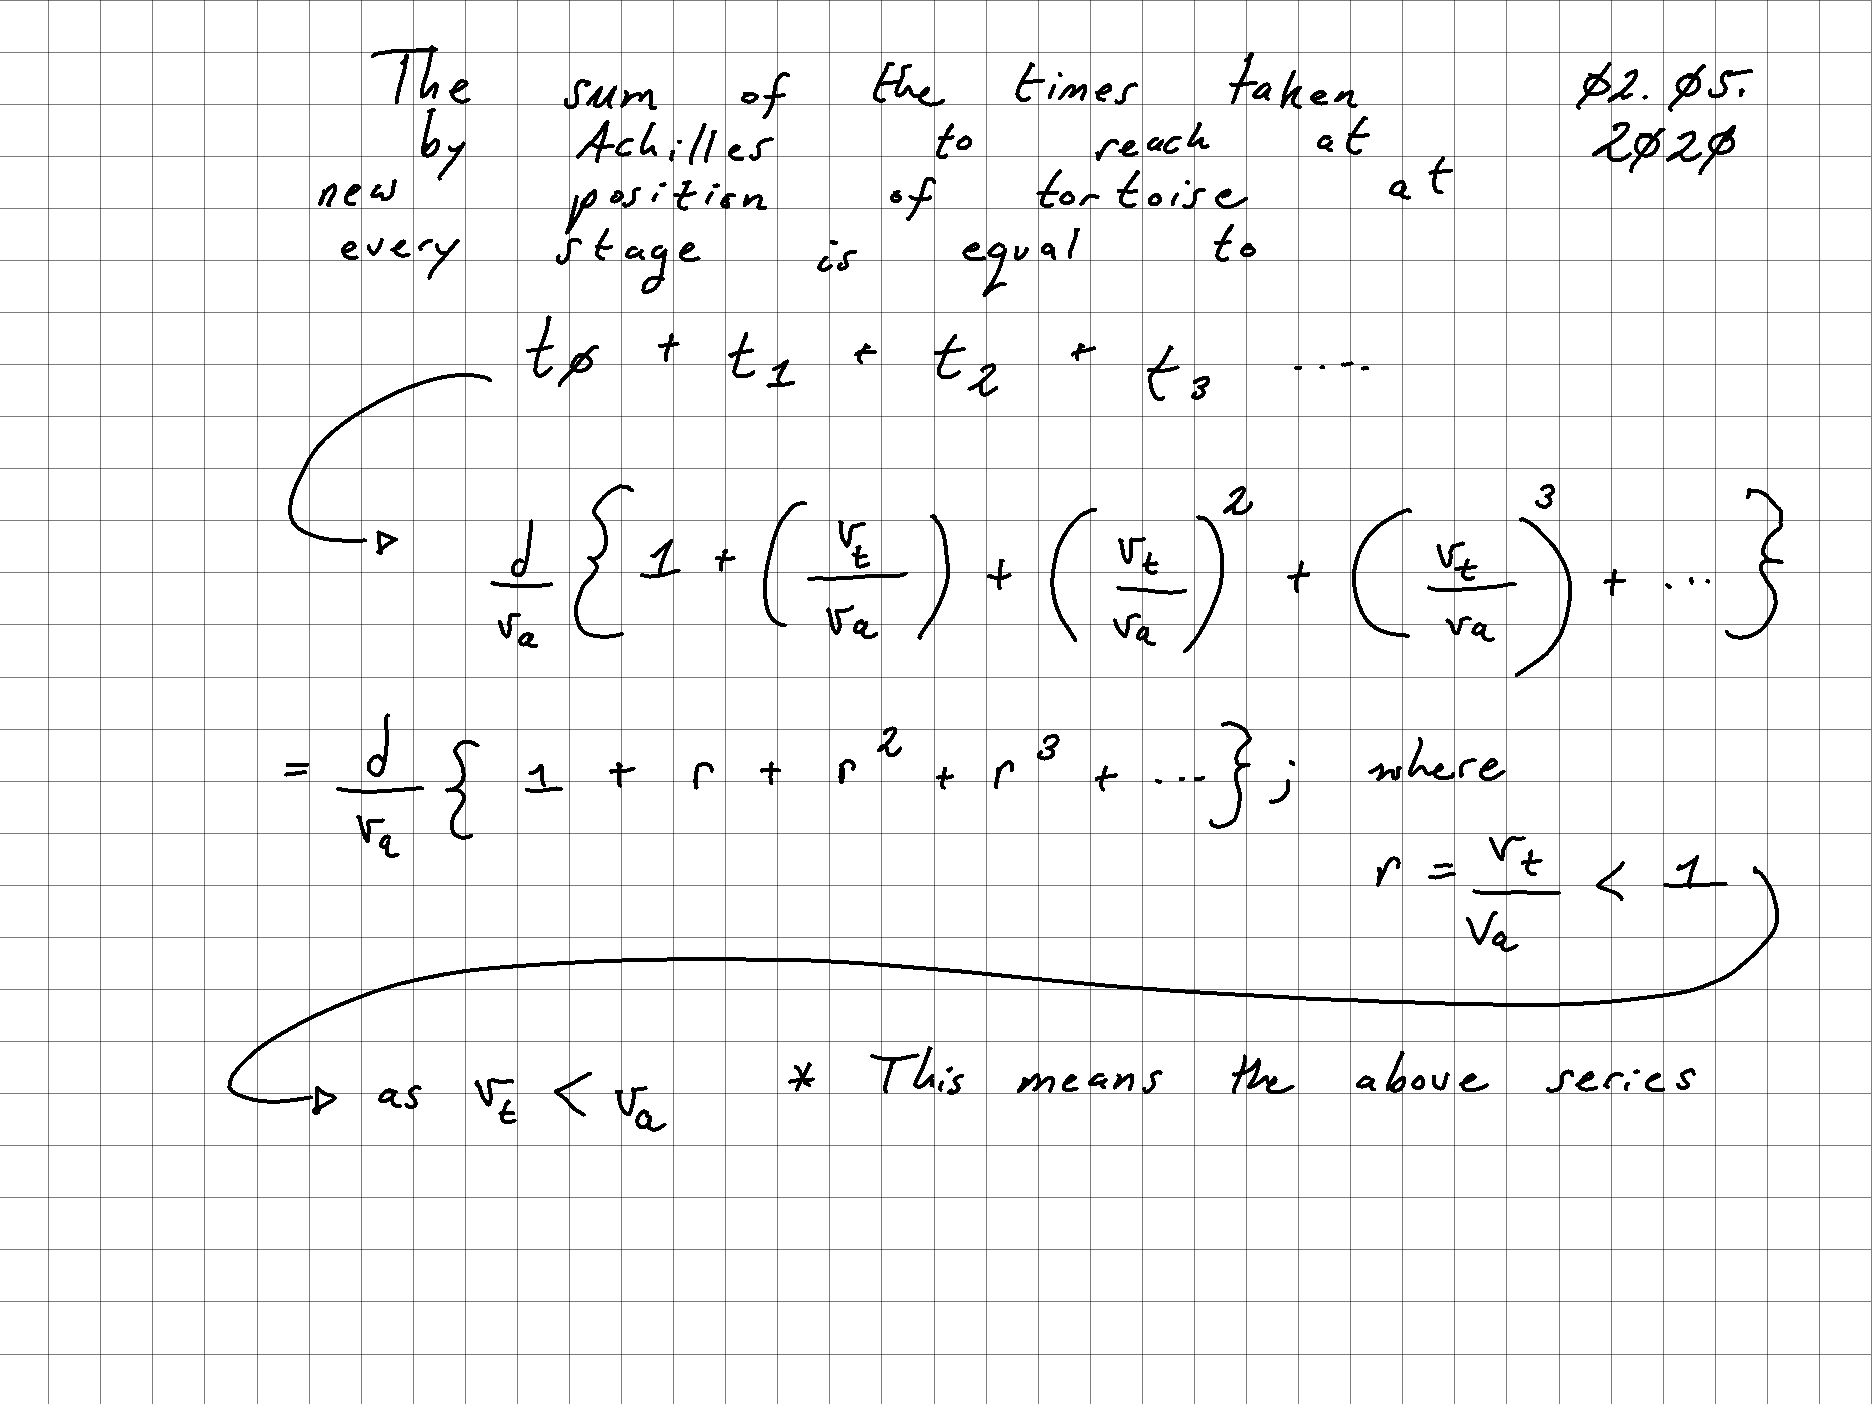 The sum of the times taken ø2. ø5.
by Achilles to reach at 2ø2ø
new position of tortoise at at
every stage is equal to
tø + t₁ + t₂ + t₃ ....
d/vₐ { 1 + (vₜ/vₐ) + (vₜ/vₐ)² + (vₜ/vₐ)³ + ... }
= d/vₐ { 1 + r + r² + r³ + ... } ; where
r = vₜ/vₐ < 1
as vₜ < vₐ * This means the above series